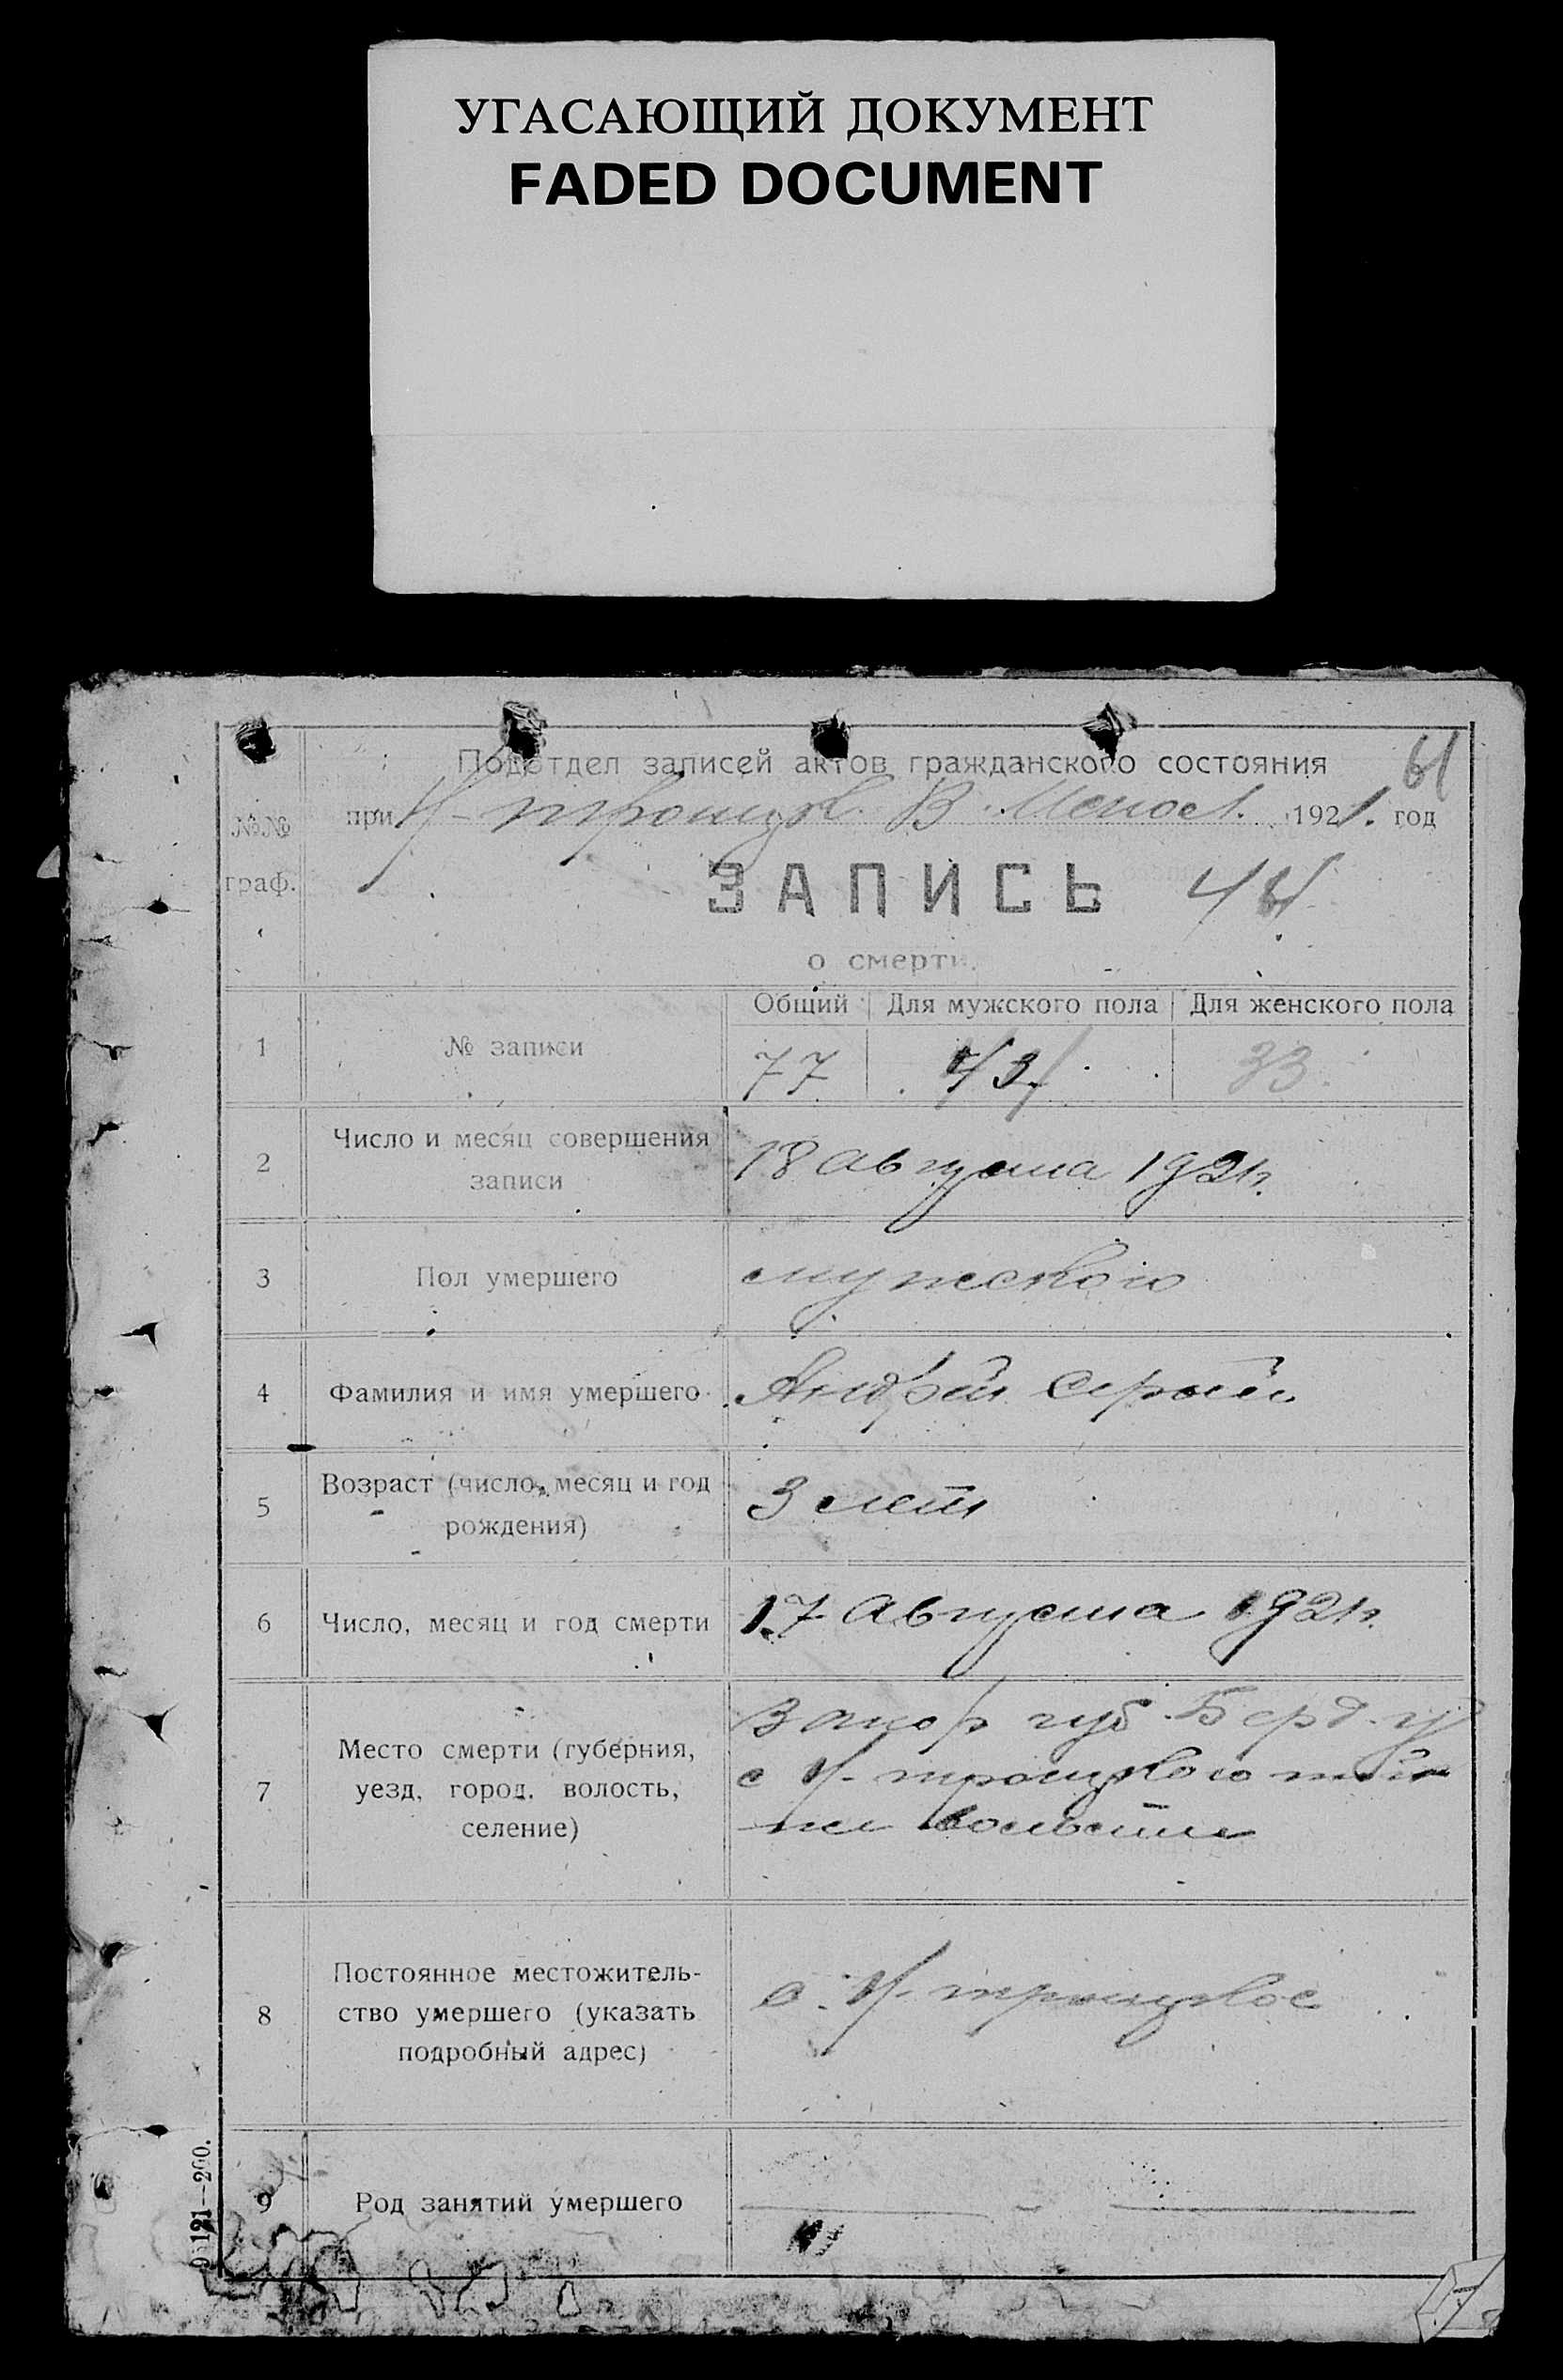 УГАСАЮЩИЙ ДОКУМЕНТ
FADED DOCUMENT
Подотдел записей актов гражданского состояния
при 1921. год
№№
граф.
ЗАПИСЬ
о смерти.
Общий Для мужского пола Для женского пола
1 № записи 77 43 33
2 Число и месяц совершения
записи
18 Августа 1921г.
3 Пол умершего мужского
4 Фамилия и имя умершего Андрей Серый
5 Возраст (число, месяц и год
рождения)
3 лет
6 Число, месяц и год смерти 17 Августа 1921г.
7 Место смерти (губерния,
уезд, город, волость,
селение)
Запор губ. Берд. у
с Н-троицкого той
же волости
8 Постоянное местожитель-
ство умершего (указать
подробный адрес)
с. Н-троицкое
9 Род занятий умершего